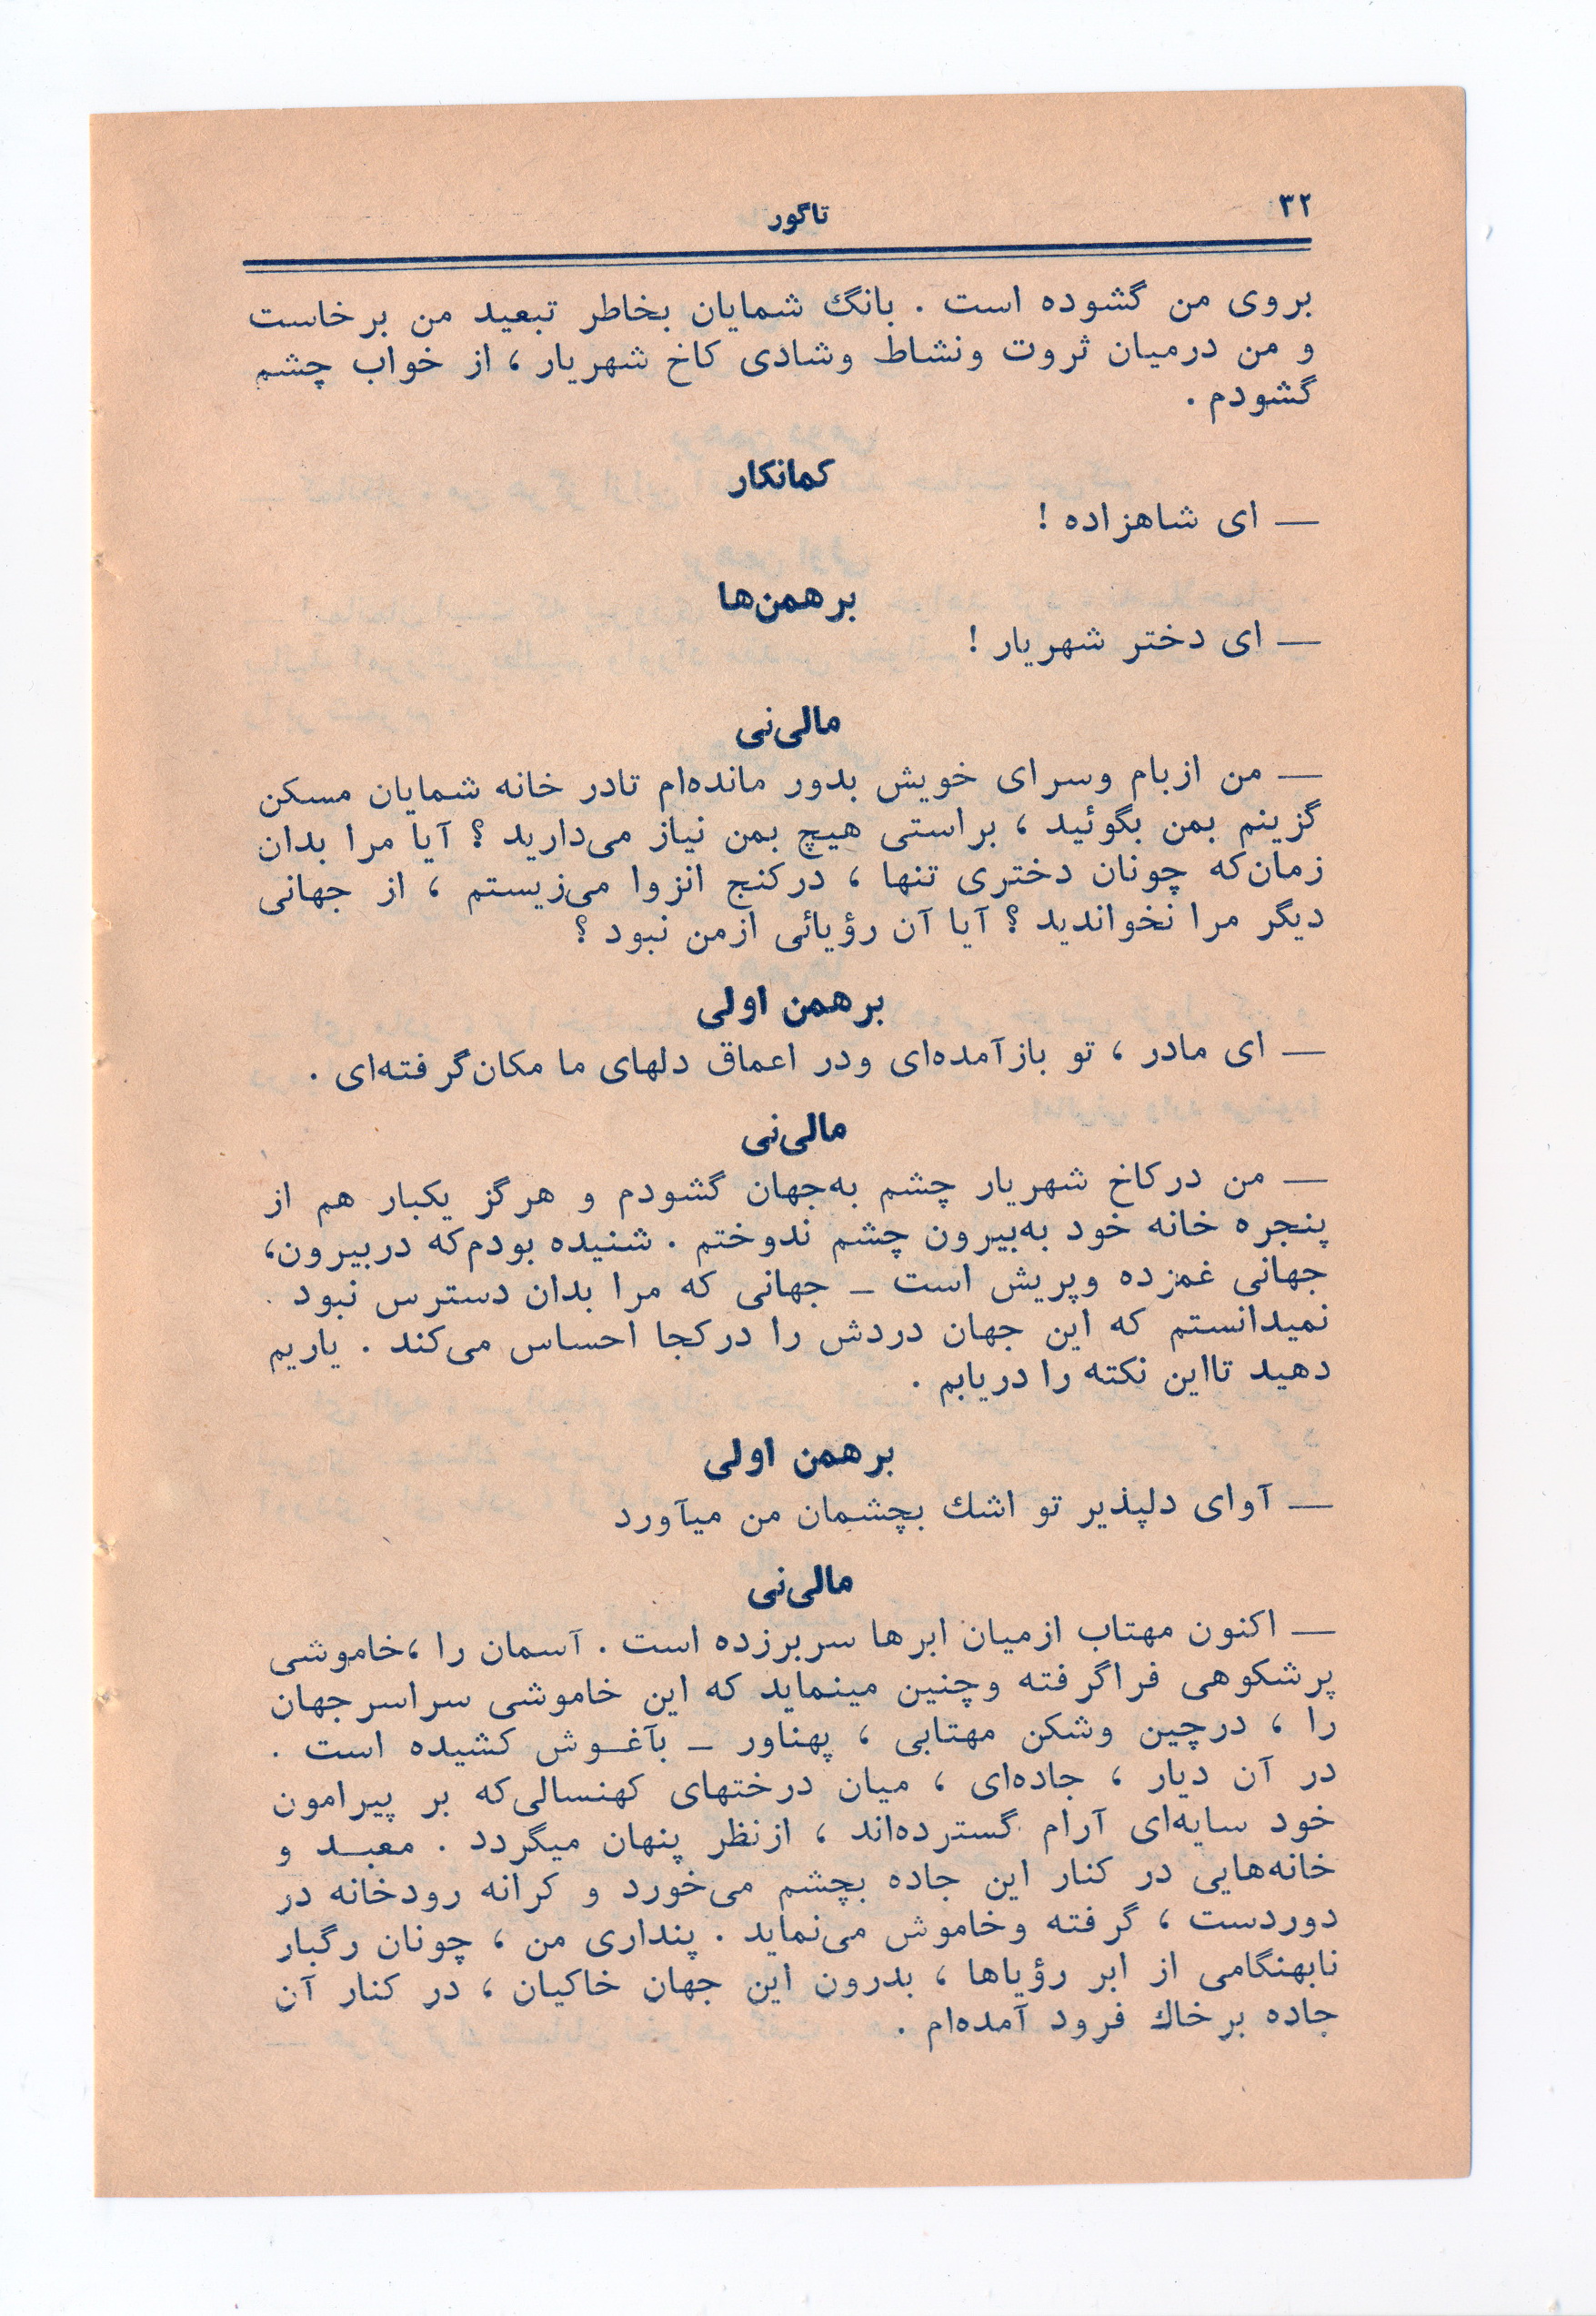 ۳۲
تاگور
بروی من گشوده است . بانگ شمایان بخاطر تبعید من برخاست
و من درمیان ثروت ونشاط وشادی کاخ شهریار ، از خواب چشم
گشودم .
کمانکار
— ای شاهزاده !
برهمن‌ها
— ای دختر شهریار !
مالی‌نی
— من ازبام وسرای خویش بدور مانده‌ام تادر خانه شمایان مسکن
گزینم بمن بگوئید ، براستی هیچ بمن نیاز می‌دارید ؟ آیا مرا بدان
زمان‌که چونان دختری تنها ، درکنج انزوا می‌زیستم ، از جهانی
دیگر مرا نخواندید ؟ آیا آن رؤیائی ازمن نبود ؟
برهمن اولی
— ای مادر ، تو بازآمده‌ای ودر اعماق دلهای ما مکان‌گرفته‌ای .
مالی‌نی
— من درکاخ شهریار چشم به‌جهان گشودم و هرگز یکبار هم از
پنجره خانه خود به‌بیرون چشم ندوختم . شنیده بودم‌که دربیرون،
جهانی غمزده وپریش است – جهانی که مرا بدان دسترس نبود .
نمیدانستم که این جهان دردش را درکجا احساس می‌کند . یاریم
دهید تااین نکته را دریابم .
برهمن اولی
— آوای دلپذیر تو اشك بچشمان من میآورد
مالی‌نی
— اکنون مهتاب ازمیان ابرها سربرزده است . آسمان را ،خاموشی
پرشکوهی فراگرفته وچنین مینماید که این خاموشی سراسرجهان
را ، درچین وشکن مهتابی ، پهناور – بآغـوش کشیده است .
در آن دیار ، جاده‌ای ، میان درختهای کهنسالی‌که بر پیرامون
خود سایه‌ای آرام گسترده‌اند ، ازنظر پنهان میگردد . معبـد و
خانه‌هایی در کنار این جاده بچشم می‌خورد و کرانه رودخانه در
دوردست ، گرفته وخاموش می‌نماید . پنداری من ، چونان رگبار
نابهنگامی از ابر رؤیاها ، بدرون این جهان خاکیان ، در کنار آن
جاده برخاك فرود آمده‌ام .